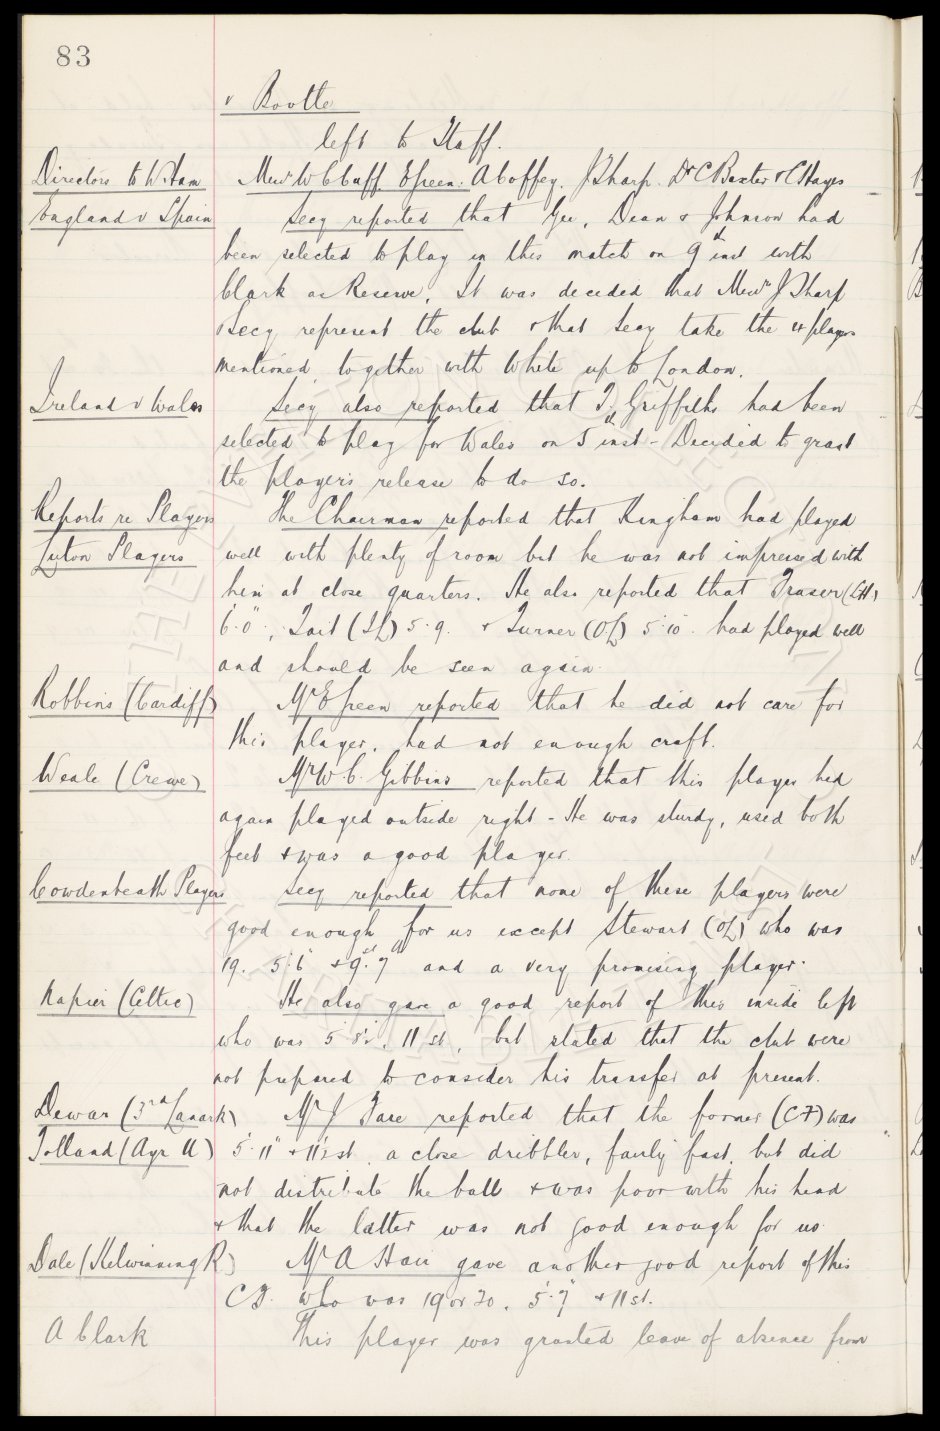 83
v Bootle
left to Staff.
Directors to W. Ham Messrs W C Cuff, E Green, A Coffey, J Sharp, Dr C Baxter & C Hayes
England v Spain Secy reported that Gee, Dean & Johnson had
been selected to play in this match on 9th inst with
Clark as Reserve. It was decided that Messrs J Sharp
& Secy represent the club & that Secy take the 4 players
mentioned, together with White up to London.
Ireland v Wales Secy also reported that T. Griffiths had been
selected to play for Wales on 5th inst - Decided to grant
the players release to do so.
Reports re Players The Chairman reported that Kingham had played
Luton Players well with plenty of room but he was not impressed with
him at close quarters. He also reported that Fraser (LH)
6'.0"., Tait (IL) 5.9. & Turner (OL) 5'.10" had played well
and should be seen again.
Robbins (Cardiff) Mr E Green reported that he did not care for
this player, had not enough craft.
Weale (Crewe) Mr W C. Gibbins reported that this player had
again played outside right - He was sturdy, used both
feet & was a good player.
Cowdenbeath Players Secy reported that none of these players were
good enough for us except Stewart (OL) who was
19. 5'.6" & 9st.7lb and a very promising player.
Napier (Celtic) He also gave a good report of this inside left
who was 5'8½", 11 st, but stated that the club were
not prepared to consider his transfer at present.
Dewar (3rd Lanark) Mr J Fare reported that the former (CF) was
Tolland (Ayr U) 5'.11" & 11½ st, a close dribbler, fairly fast, but did
not distribute the ball & was poor with his head
& that the latter was not good enough for us.
Dale (Kilwinning R) Mr A Hair gave another good report of this
C.F. who was 19 or 20, 5'.7" & 11 st.
A Clark This player was granted leave of absence from